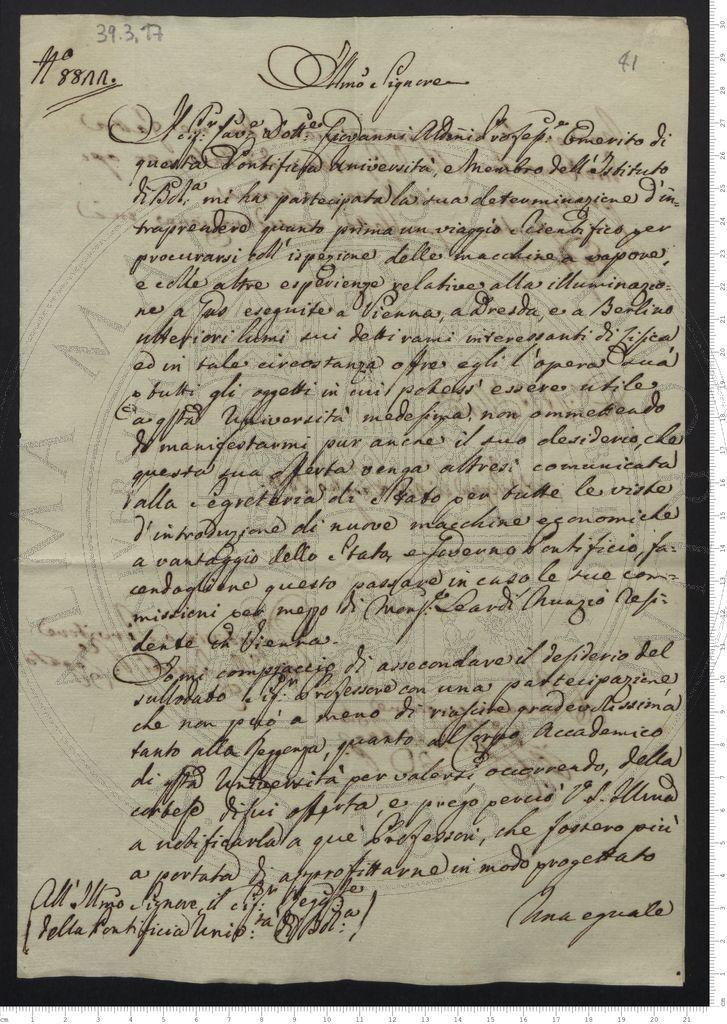 39.3.17
41
N.º 8811.
Illmo Signore
Il Sig.r Cav.e Dott.e Giovanni Aldini Profess.e Emerito di
questa Pontificia Università, e Membro dell'Istituto
di Bol.a mi ha partecipata la sua determinazione d'in=
traprendere quanto prima un viaggio Scientifico per
procurarsi coll'ispezione delle macchine a vapore,
e colle altre esperienze relative alla illuminazio=
ne a Gas eseguite a Vienna, a Dresda, e a Berlino
ulteriori lumi sui detti rami interessanti di Fisica
ed in tale circostanza offre egli l'opera sua
a tutti gli oggetti in cui potess'essere utile
a qsta Università medesima, non ommettendo
di manifestarmi pur anche il suo desiderio, che
questa sua offerta venga altresì comunicata
alla Segreteria di Stato per tutte le viste
d'introduzione di nuove macchine economiche
a vantaggio dello Stato, e Governo Pontificio, fa=
cendogliene questo passare in caso le sue com=
missioni per mezzo di Mons.r Leardi Nunzio Resi=
dente in Vienna.
Io mi compiaccio di assecondare il desiderio del
sullodato Sig.r Professore con una partecipazione
che non può a meno di riuscire gradevolissima
tanto alla Reggenza, quanto al Corpo Accademico
di qsta Università per valersi occorrendo, della
cortese di lui offerta, e prego perciò V.S. Illma
a notificarla a que' Professori, che fossero più
a portata di approfittarne in modo progettato
Una eguale
All'Illmo Signore il Sig.r Regg.te
della Pontificia Univ.tà di Bol.a